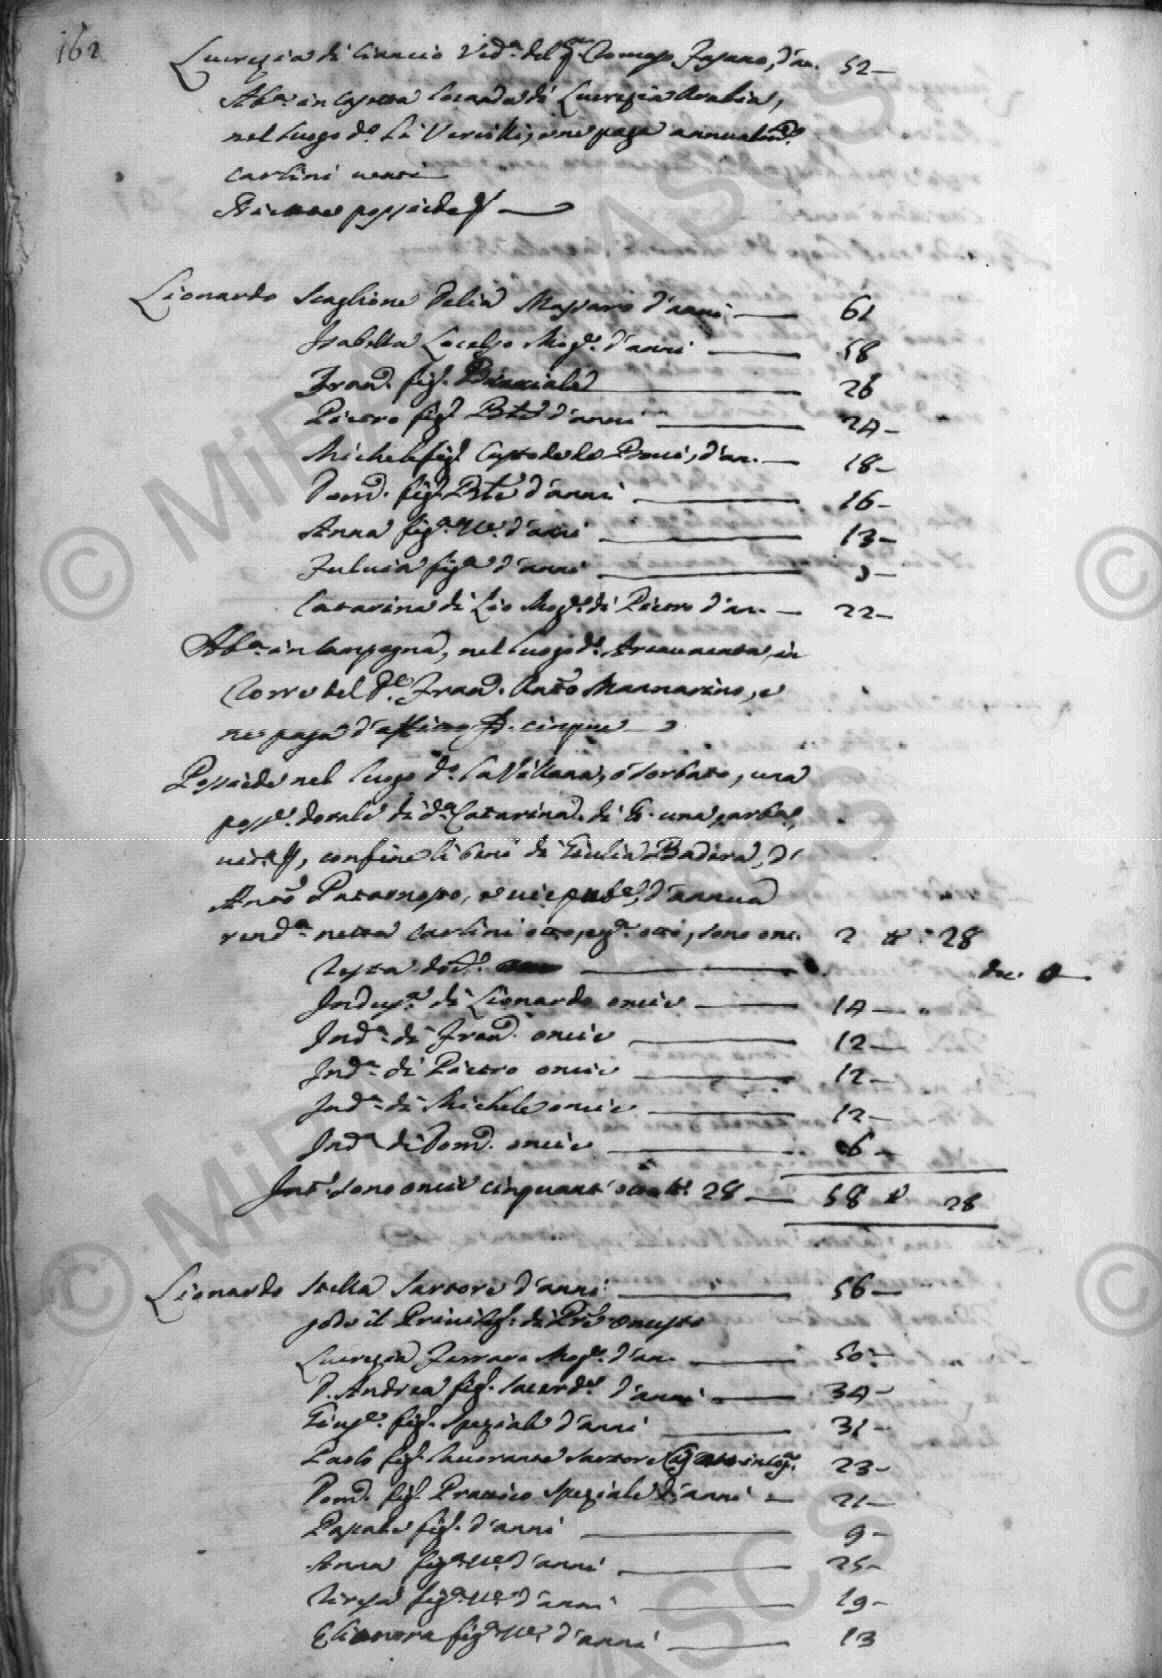 162
Lucrezia di Ciancio Vid.ª del q.m Tomaso Fasano, d'an. 52
Ab.ª in Casetta locanda di Lucrezia Arabia,
nel luogo d.º li Vercilli, e ne paga annualm.e
carlini venti
Niente possiede
Lionardo Scaglione d'Elia Massaro d'anni 61
Isabella Locelso Mog.e d'anni 58
Fran.º fig.º Bracciale 26
Pietro fig.º Br.le d'anni 24
Michele fig.º Custode de Bovi, d'an. 18
Dom.º fig.º Br.le d'anni 16
Anna fig.ª in C.e d'anni 13
Fulvia fig.ª d'anni 3
Catarina di Lio Mog.e di Pietro d'an. 22
Ab.ª in Campagna, nel luogo d.º in
Torre del D.r Fran.º Ant.º Mannarino, e
ne paga d'affitto cinque
Possiede nel luogo d.º la Villana, o Sorbato, una
poss.e dotale di d.ª Catarina di una
confine li beni di Giulia Badira, d'
Ant.º Paternosto, e via pub.ª, d'annua
rend.ª netta carlini otto, e g.ª otto, sono onc. 2 28
Testa doc. 0
Indus.ª di Lionardo oncie 14
Ind.ª di Fran.º oncie 12
Ind.ª di Pietro oncie 12
Ind.ª di Michele oncie 12
Ind.ª di Dom.º oncie 6
Int.º sono oncie cinquant'otto t.ª 28 58 28
Lionardo Stella Sartore d'anni 56
gode il Privileg.º di P.re onusto
Lucrezia Ferraro Mog.e d'an. 50
D. Andrea fig.º Sacerd.e d'anni 34
Gius.e fig.º Speziale d'anni 31
Paolo fig.º lavorante Sartore 23
Dom.º fig.º Prattico Speziale d'anni 21
Pascale fig.º d'anni 9
Anna fig.ª in C.e d'anni 25
Teresa fig.ª in C.e d'anni 19
Elianora fig.ª in C.e d'anni 13
© MiBAC ASCS
© MiBAC ASCS
ASCS
©
©